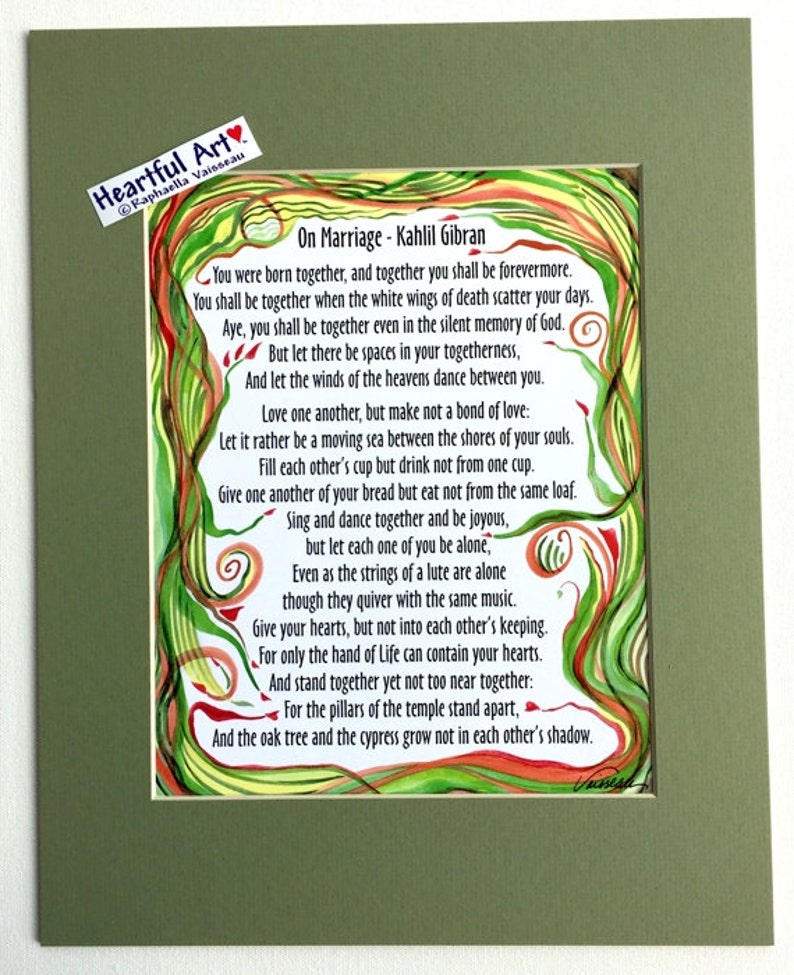 Heartful Art
© Raphaella Vaisseau
On Marriage - Kahlil Gibran
You were born together, and together you shall be forevermore.
You shall be together when the white wings of death scatter your days.
Aye, you shall be together even in the silent memory of God.
But let there be spaces in your togetherness,
And let the winds of the heavens dance between you.
Love one another, but make not a bond of love:
Let it rather be a moving sea between the shores of your souls.
Fill each other's cup but drink not from one cup.
Give one another of your bread but eat not from the same loaf.
Sing and dance together and be joyous,
but let each one of you be alone,
Even as the strings of a lute are alone
though they quiver with the same music.
Give your hearts, but not into each other's keeping.
For only the hand of Life can contain your hearts.
And stand together yet not too near together:
For the pillars of the temple stand apart,
And the oak tree and the cypress grow not in each other's shadow.
Vaisseau